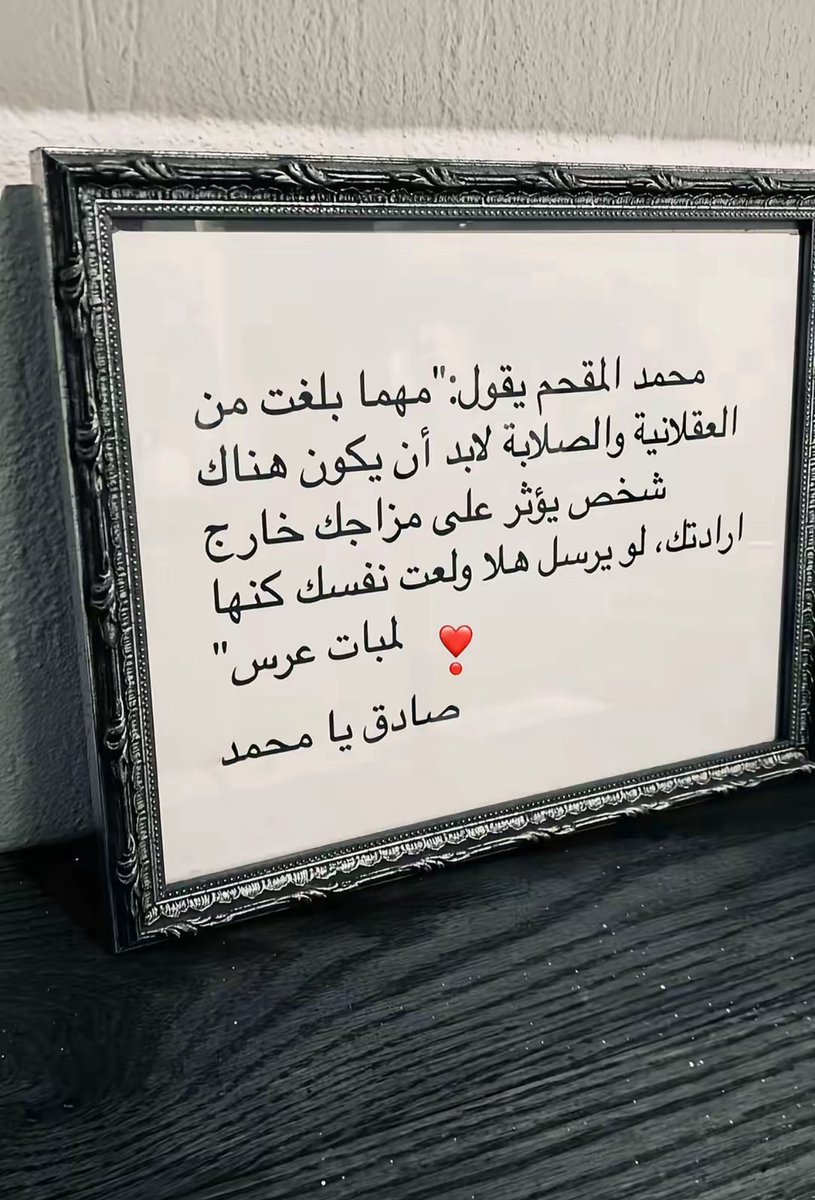 محمد المقحم يقول:"مهما بلغت من
العقلانية والصلابة لابد أن يكون هناك
شخص يؤثر على مزاجك خارج
ارادتك، لو يرسل هلا ولعت نفسك كنها
لمبات عرس" ❣️
صادق يا محمد